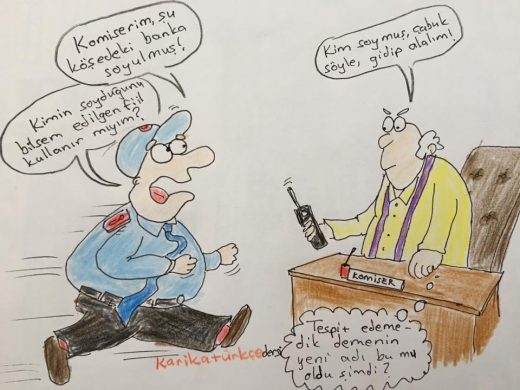 Komiserim, şu
köşedeki banka
soyulmuş!
Kimin soyduğunu
bilsem edilgen fiil
kullanır mıyım?
Kim soymuş, çabuk
söyle, gidip alalım!
KOMİSER
Tespit edeme-
dik demenin
yeni adı bu mu
oldu şimdi?
karikatürkçedersi